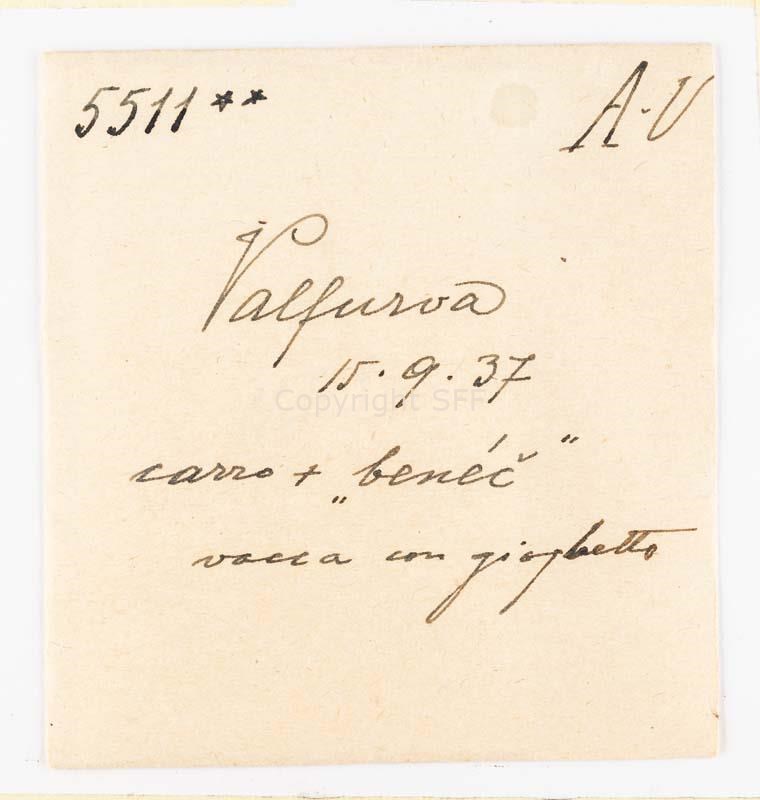 5511** A-V
Valfurva
15.9.37
Copyright SFF
carro + "benéč"
vacca con gioghetto